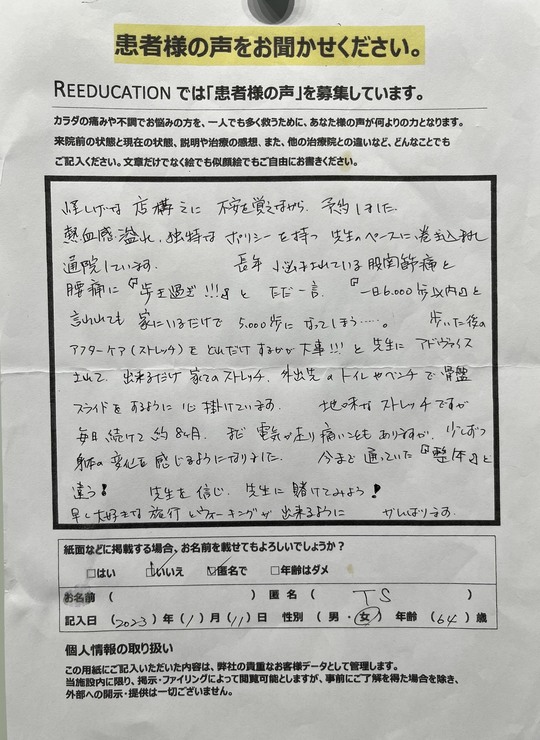 患者様の声をお聞かせください。
REEDUCATION では「患者様の声」を募集しています。
カラダの痛みや不調でお悩みの方を、一人でも多く救うために、あなた様の声が何よりの力となります。
来院前の状態と現在の状態、説明や治療の感想、また、他の治療院との違いなど、どんなことでも
ご記入ください。文章だけでなく絵でも似顔絵でもご自由にお書きください。
怪しげな 店構えに 不安を覚えながら、予約しました。
熱血感溢れ、独特な ポリシーを持つ 先生のペースに、巻き込まれ
通院しています。 長年 悩まされている股関節痛と
腰痛に『歩き過ぎ!!!』と ただ一言。『一日6,000歩以内』と
言われても 家にいるだけで 5,000歩になってしまう……。 歩いた後の
アフターケア(ストレッチ)を どれだけするかが大事!!! と先生に アドヴァイス
されて、出来るだけ 家でのストレッチ、外出先のトイレやベンチで骨盤
スライドをするように 心掛けています。 地味なストレッチですが
毎日続けて約8ヶ月、まだ 電気が走り痛いこともありますが、少しずつ
身体の変化を感じるようになりました。 今まで通っていた『整体』と
違う! 先生を信じ、先生に賭けてみよう!
早く大好きな旅行とウォーキングが出来るように がんばります。
紙面などに掲載する場合、お名前を載せてもよろしいでしょうか?
□はい ☑いいえ ☑匿名で □年齢はダメ
お名前 ( ) 匿名 ( TS )
記入日 (2023) 年 (1) 月 (11) 日 性別 (男・女) 年齢 (64) 歳
個人情報の取り扱い
この用紙にご記入いただいた内容は、弊社の貴重なお客様データとして管理します。
当施設内に限り、掲示・ファイリングによって閲覧可能としますが、事前にご了解を得た場合を除き、
外部への開示・提供は一切ございません。